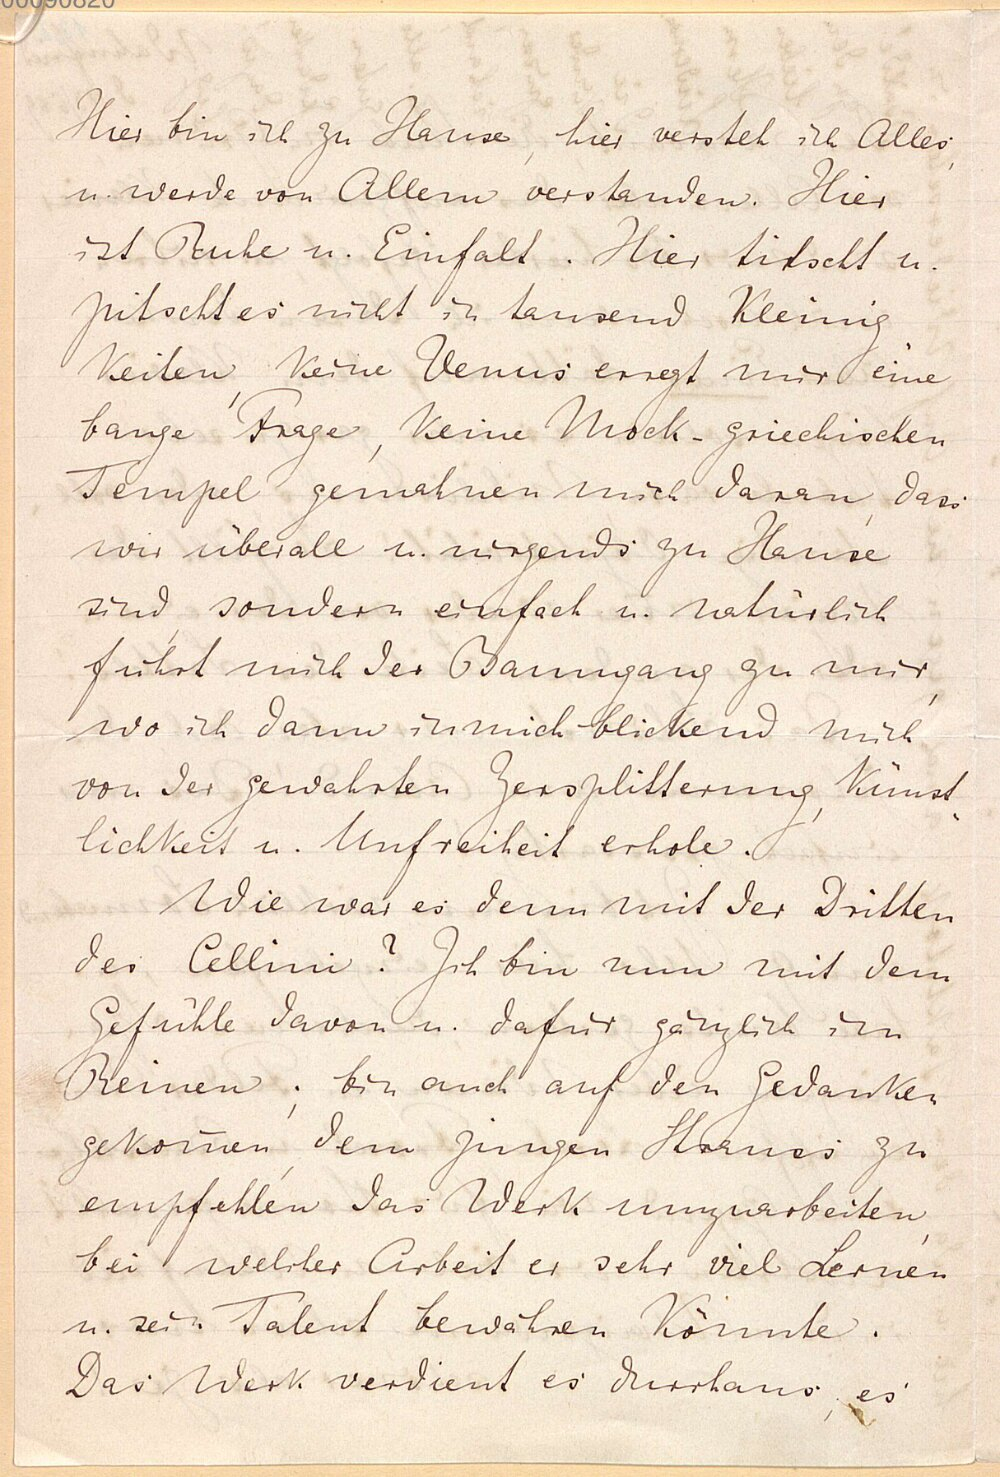 00090820
Hier bin ich zu Hause, hier versteh ich Alles,
u. werde von Allem verstanden. Hier
ist Ruhe u. Einfalt. Hier titscht u.
pitscht es nicht in tausend Kleinig
keiten, keine Venus erregt mir eine
bange Frage, keine Mock-griechischen
Tempel gemahnen mich daran, dass
wir überall u. nirgends zu Hause
sind, sondern einfach u. natürlich
führt mich der Baumgang zu mir,
wo ich dann in mich blickend mich
von der gewahrten Zersplitterung, Künst-
lichkeit u. Unfreiheit erhole.
Wie war es denn mit der Dritten
des Cellini? Ich bin nun mit dem
Gefühle davon u. dafür gänzlich im
Reinen; bin auch auf den Gedanken
gekom̄en, dem jungen Strauss zu
empfehlen das Werk umzuarbeiten,
bei welcher Arbeit er sehr viel Lernen
u. sein Talent bewähren könnte.
Das Werk verdient es durchaus, es